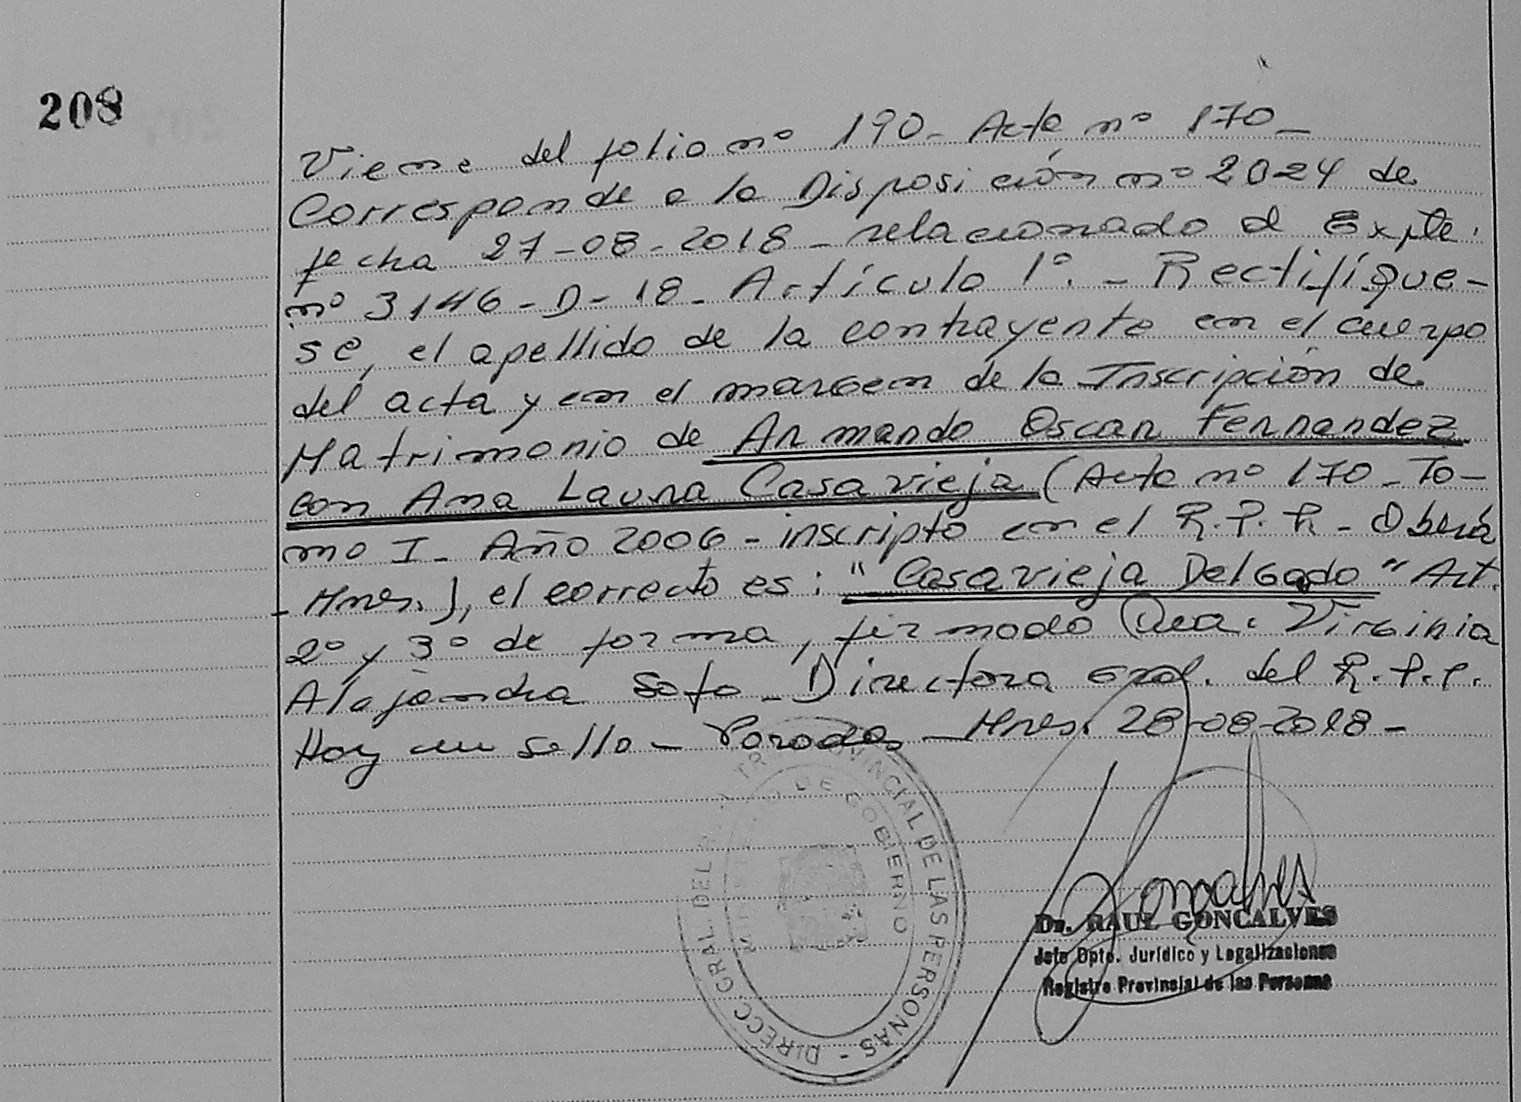 208
Viene del folio nº 190- Acta nº 170-
Corresponde a la Disposición nº 2024 de
fecha 27-08-2018- relacionado al Expte.
nº 3146-D-18- Artículo 1º.- Rectifíque-
se, el apellido de la contrayente en el cuerpo
del acta y en el margen de la Inscripción de
Matrimonio de Armando Oscar Fernandez
con Ana Laura Casavieja (Acta nº 170-To-
mo I- Año 2006- inscripto en el R.P.P.- Oberá
-Mnes.), el correcto es: "Casavieja Delgado" Art.
2º y 3º de forma, firmado Dra. Virginia
Alejandra Soto- Directora Gral. del R.P.P.
Hoy un sello- Posadas- Mnes. 28-08-2018-
DIRECC. GRAL. DEL PROVINCIAL DE LAS PERSONAS -
DE GOBIERNO
Dr. RAUL GONCALVES
Jefe Dpto. Jurídico y Legalizaciones
Registro Provincial de las Personas